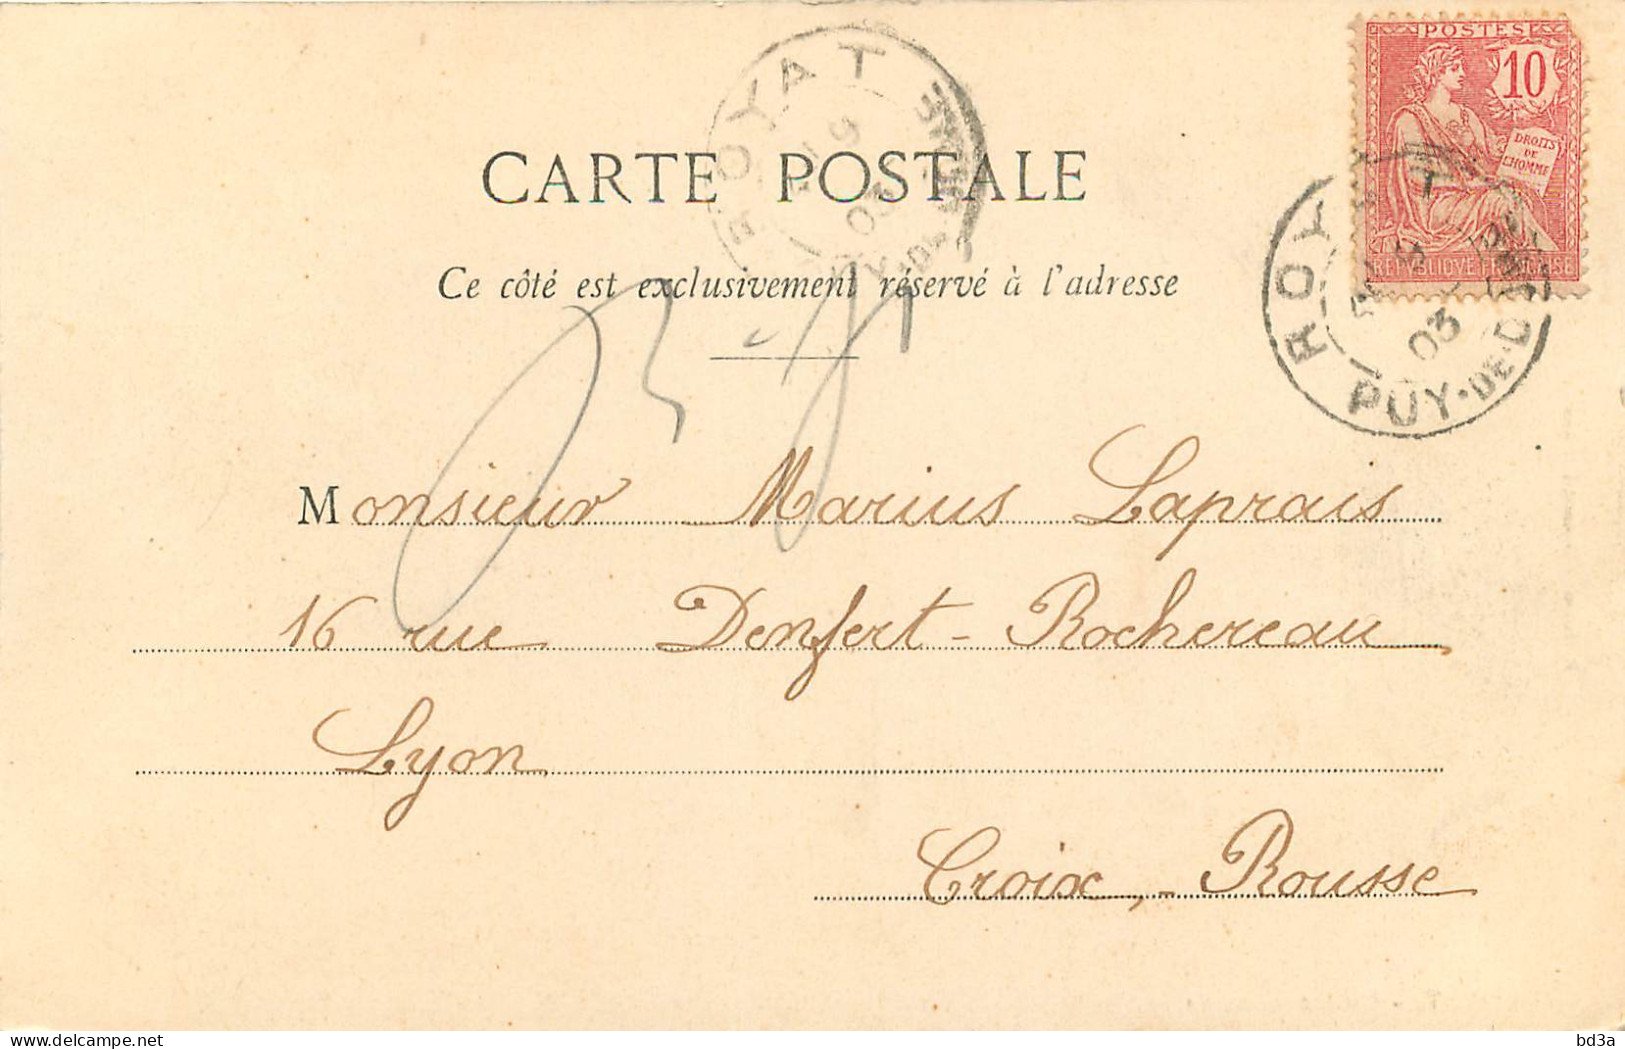 ROYAT PUY-DE-DÔME
03
POSTES
10
DROITS
DE
L'HOMME
REPUBLIQUE FRANÇAISE
ROYAT PUY-DE-DÔME
03
CARTE POSTALE
Ce côté est exclusivement réservé à l'adresse
Monsieur Marius Laprais
16 rue Denfert-Rochereau
Lyon
Croix-Rousse
delcampe.net
bd3a